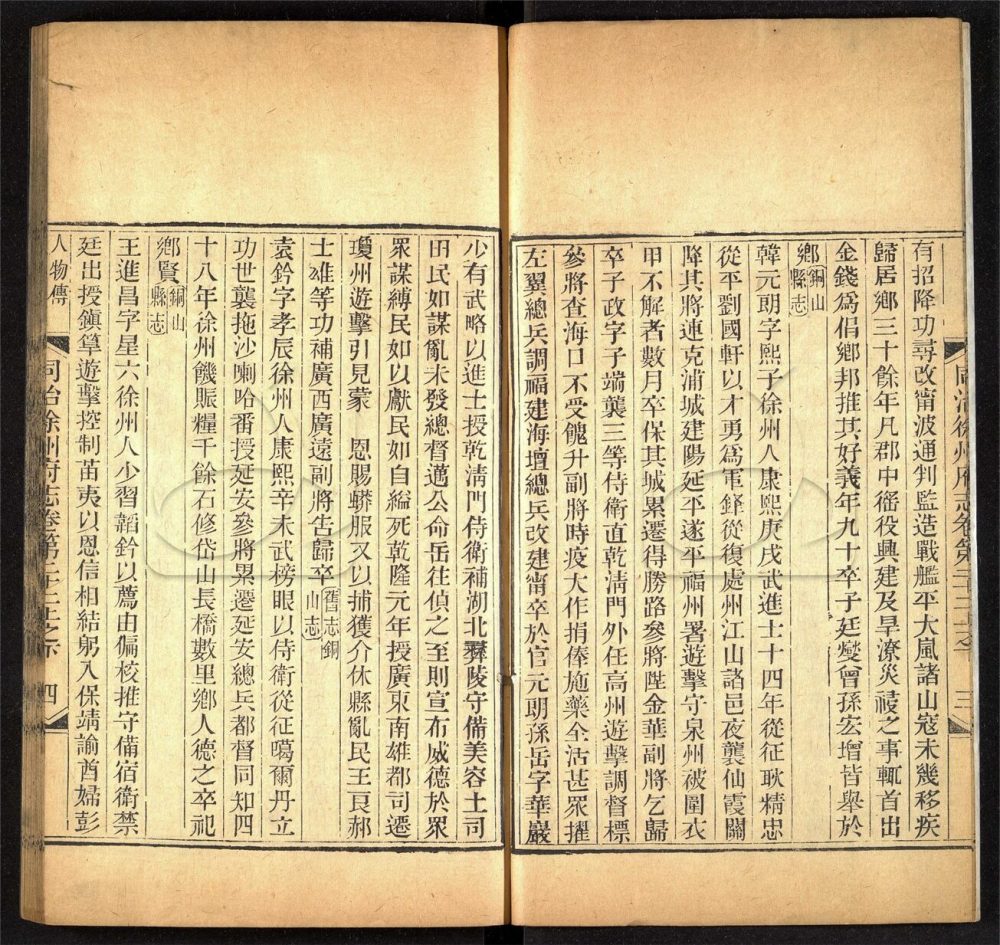 有招降功尋改甯波通判監造戰艦平大嵐諸山寇未幾移疾
歸居鄉三十餘年凡郡中徭役興建及旱潦災祲之事輒首出
金錢爲倡鄉邦推其好義年九十卒子廷燮曾孫宏增皆舉於
鄉銅山縣志
韓元朗字熙子徐州人康熙庚戌武進士十四年從征耿精忠
從平劉國軒以才勇爲軍鋒從復處州江山諸邑夜襲仙霞關
降其將連克浦城建陽延平遂平福州署遊擊守泉州被圍衣
甲不解者數月卒保其城累遷得勝路參將陞金華副將乞歸
卒子政字子端襲三等侍衛直乾淸門外任高州遊擊調督標
參將查海口不受餽升副將時疫大作捐俸施藥全活甚眾擢
左翼總兵調福建海壇總兵改建甯卒於官元朗孫岳字華嚴
同治徐州府志卷第二十二上之下 三
少有武略以進士授乾淸門侍衛補湖北彝陵守備美容土司
田民如謀亂未發總督邁公命岳往偵之至則宣布威德於眾
眾謀縛民如以獻民如自縊死乾隆元年授廣東南雄都司遷
瓊州遊擊引見蒙 恩賜蟒服又以捕獲介休縣亂民王艮郝
士雄等功補廣西廣遠副將告歸卒舊志銅山志
袁鈐字孝辰徐州人康熙辛未武榜眼以侍衛從征噶爾丹立
功世襲拖沙喇哈番授延安參將累遷延安總兵都督同知四
十八年徐州饑賑糧千餘石修岱山長橋數里鄉人德之卒祀
鄉賢銅山縣志
王進昌字星六徐州人少習韜鈐以薦由偏校推守備宿衛禁
廷出授鎭筸遊擊控制苗夷以恩信相結躬入保靖諭酋婦彭
人物傳 同治徐州府志卷第二十二上之下 四